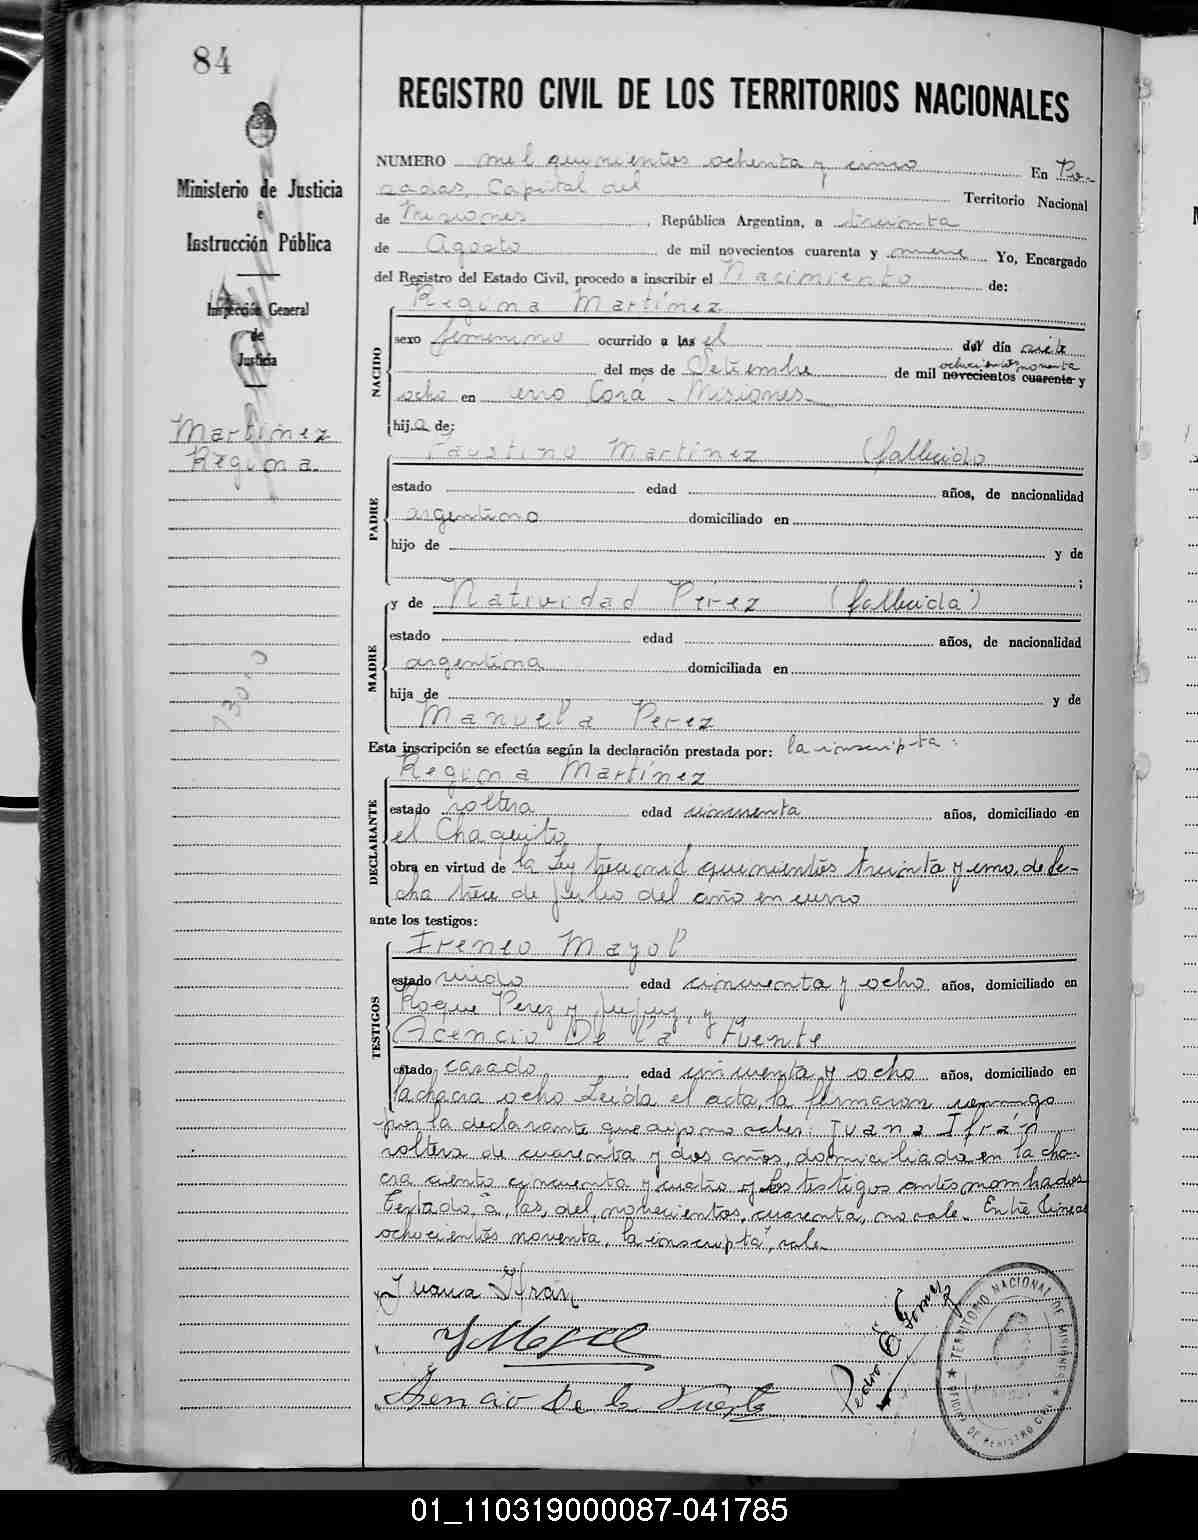 84
Ministerio de Justicia
e
Instrucción Pública
Inspección General
de
Justicia
Martinez
Regina.
REGISTRO CIVIL DE LOS TERRITORIOS NACIONALES
NUMERO mil quinientos ochenta y cinco En Po-
sadas, Capital del Territorio Nacional
de Misiones, República Argentina, a treinta
de Agosto de mil novecientos cuarenta y nueve Yo, Encargado
del Registro del Estado Civil, procedo a inscribir el Nacimiento de:
NACIDO
Regina Martínez
sexo femenino ocurrido a las el del día siete
ochocientos noventa
del mes de Setiembre de mil novecientos cuarenta y
ocho en Cerro Corá - Misiones-
hija de:
PADRE
Faustino Martínez (fallecido
estado edad años, de nacionalidad
argentino domiciliado en
hijo de y de
;
MADRE
y de Natividad Pérez (fallecida)
estado edad años, de nacionalidad
argentina domiciliada en
hija de y de
Manuela Perez
Esta inscripción se efectúa según la declaración prestada por: la inscripta:
DECLARANTE
Regina Martínez
estado soltera edad cincuenta años, domiciliado en
el Chaquito
obra en virtud de la Ley trece mil quinientos treinta y uno, de fe-
cha trece de julio del año en curso
ante los testigos:
TESTIGOS
Ireneo Mayol
estado viudo edad cincuenta y ocho años, domiciliado en
Roque Perez y Jujuy, y
Acencio De la Fuente
estado casado edad cincuenta y ocho años, domiciliado en
la chacra ocho Leída el acta, la firmaron conmigo
por la declarante que dijo no saber: Juana Ifrán
soltera de cuarenta y dos años, domiciliada en la cha-
cra ciento cincuenta y cuatro y los testigos antes nombrados
Testado, "a, las, del, novecientos, cuarenta, no vale. Entre líneas
ochocientos noventa, la inscripta", vale.
Juana Ifrán
Asencio De la Fuente
Pedro E. Gomez
TERRITORIO NACIONAL DE MISIONES
OFICINA DE REGISTRO CIVIL
01_110319000087-041785